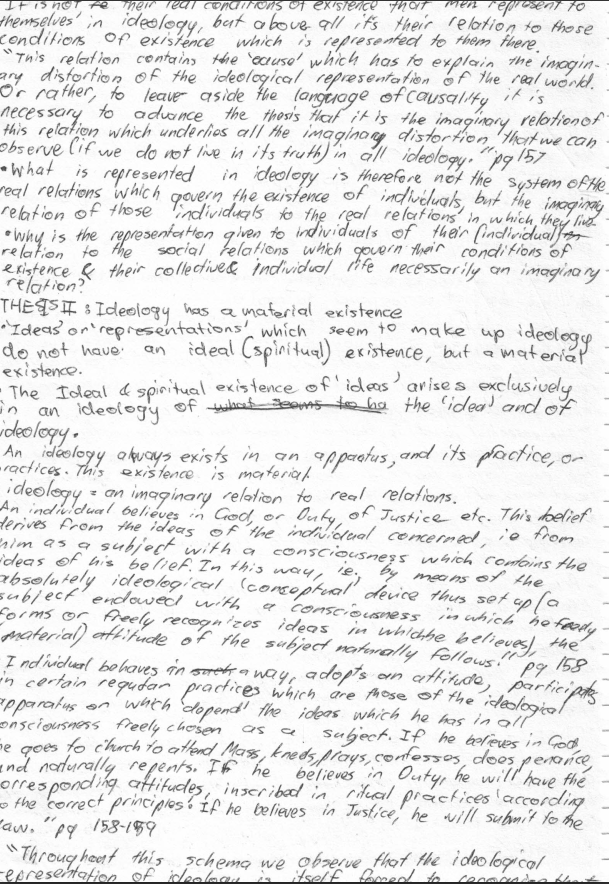 It is not their real conditions of existence that men represent to
themselves' in ideology, but above all it's their relation to those
conditions of existence which is represented to them there.
"This relation contains the 'cause' which has to explain the imagin-
ary distortion of the ideological representation of the real world.
Or rather, to leave aside the language of causality it is
necessary to advance the thesis that it is the imaginary relation of
this relation which underlies all the imaginary distortion that we can
observe (if we do not live in its truth) in all ideology." pg 157
•What is represented in ideology is therefore not the system of the
real relations which govern the existence of individuals, but the imaginary
relation of those individuals to the real relations in which they live
•Why is the representation given to individuals of their (individual)
relation to the social relations which govern their conditions of
existence & their collective & individual life necessarily an imaginary
relation?
THESIS II : Ideology has a material existence
•'Ideas' or 'representations' which seem to make up ideology
do not have an ideal (spiritual) existence, but a material
existence.
The Ideal & spiritual existence of 'ideas' arises exclusively
in an ideology of what seems to ha the 'idea' and of
ideology.
An ideology always exists in an appaatus, and its practice, or
ractices. This existence is material.
ideology = an imaginary relation to real relations.
An individual believes in God, or Duty of Justice etc. This belief
derives from the ideas of the individual concerned, ie from
him as a subject with a consciousness which contains the
ideas of his belief. In this way, ie. by means of the
absolutely ideological 'conseptual' device thus set up (a
subject endowed with a consciousness in which he freely
forms or freely recognizes ideas in which he believes), the
(material) attitude of the subject naturally follows." pg 158
Individual behaves in such a way, adopts an attitude, participates
in certain regular practices which are those of the ideological
apparatus on which 'depend' the ideas which he has in all
onsciousness freely chosen as a subject. If he believes in God
he goes to church to attend Mass, kneels, prays, confesses, does penance,
and naturally repents. If he believes in Duty, he will have the
orresponding attitudes, inscribed in ritual practices 'according
o the correct principles'. If he believes in Justice, he will submit to the
law." pg 158-159
"Throughout this schema we observe that the ideological
representation of ideology is itself forced to recognise that